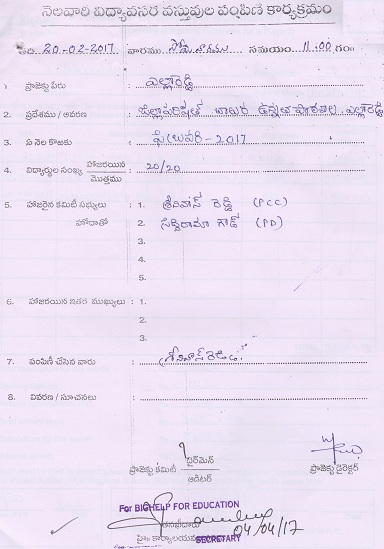 నెలవారి విద్యావసర వస్తువుల పంపిణి కార్యక్రమం
తేది: 20-02-2017 వారము సోమవారము సమయం 11.00 గం॥
1. ప్రాజెక్టు పేరు : ఎల్లారెడ్డి
2. ప్రదేశము / ఆవరణ : జిల్లాపరిషత్ బాలుర ఉన్నత పాఠశాల, ఎల్లారెడ్డి
3. ఏ నెల కొఱకు : ఫిబ్రవరి - 2017
4. విద్యార్థుల సంఖ్య హాజరయిన / మొత్తము : 20/20
5. హాజరైన కమిటీ సభ్యులు : 1. శ్రీనివాస్ రెడ్డి (PCC)
హోదాతో 2. సిద్దిరామా గౌడ్ (PD)
3.
4.
5.
6. హాజరయిన ఇతర ముఖ్యులు : 1.
2.
3.
7. పంపిణీ చేసిన వారు : శ్రీనివాస్ రెడ్డి
8. వివరణ / సూచనలు :
ప్రాజెక్టు కమిటీ ఛైర్‌మెన్ / ఆడిటర్ ప్రాజెక్టు డైరెక్టర్
For BIGHELP FOR EDUCATION
04/04/17
SECRETARY